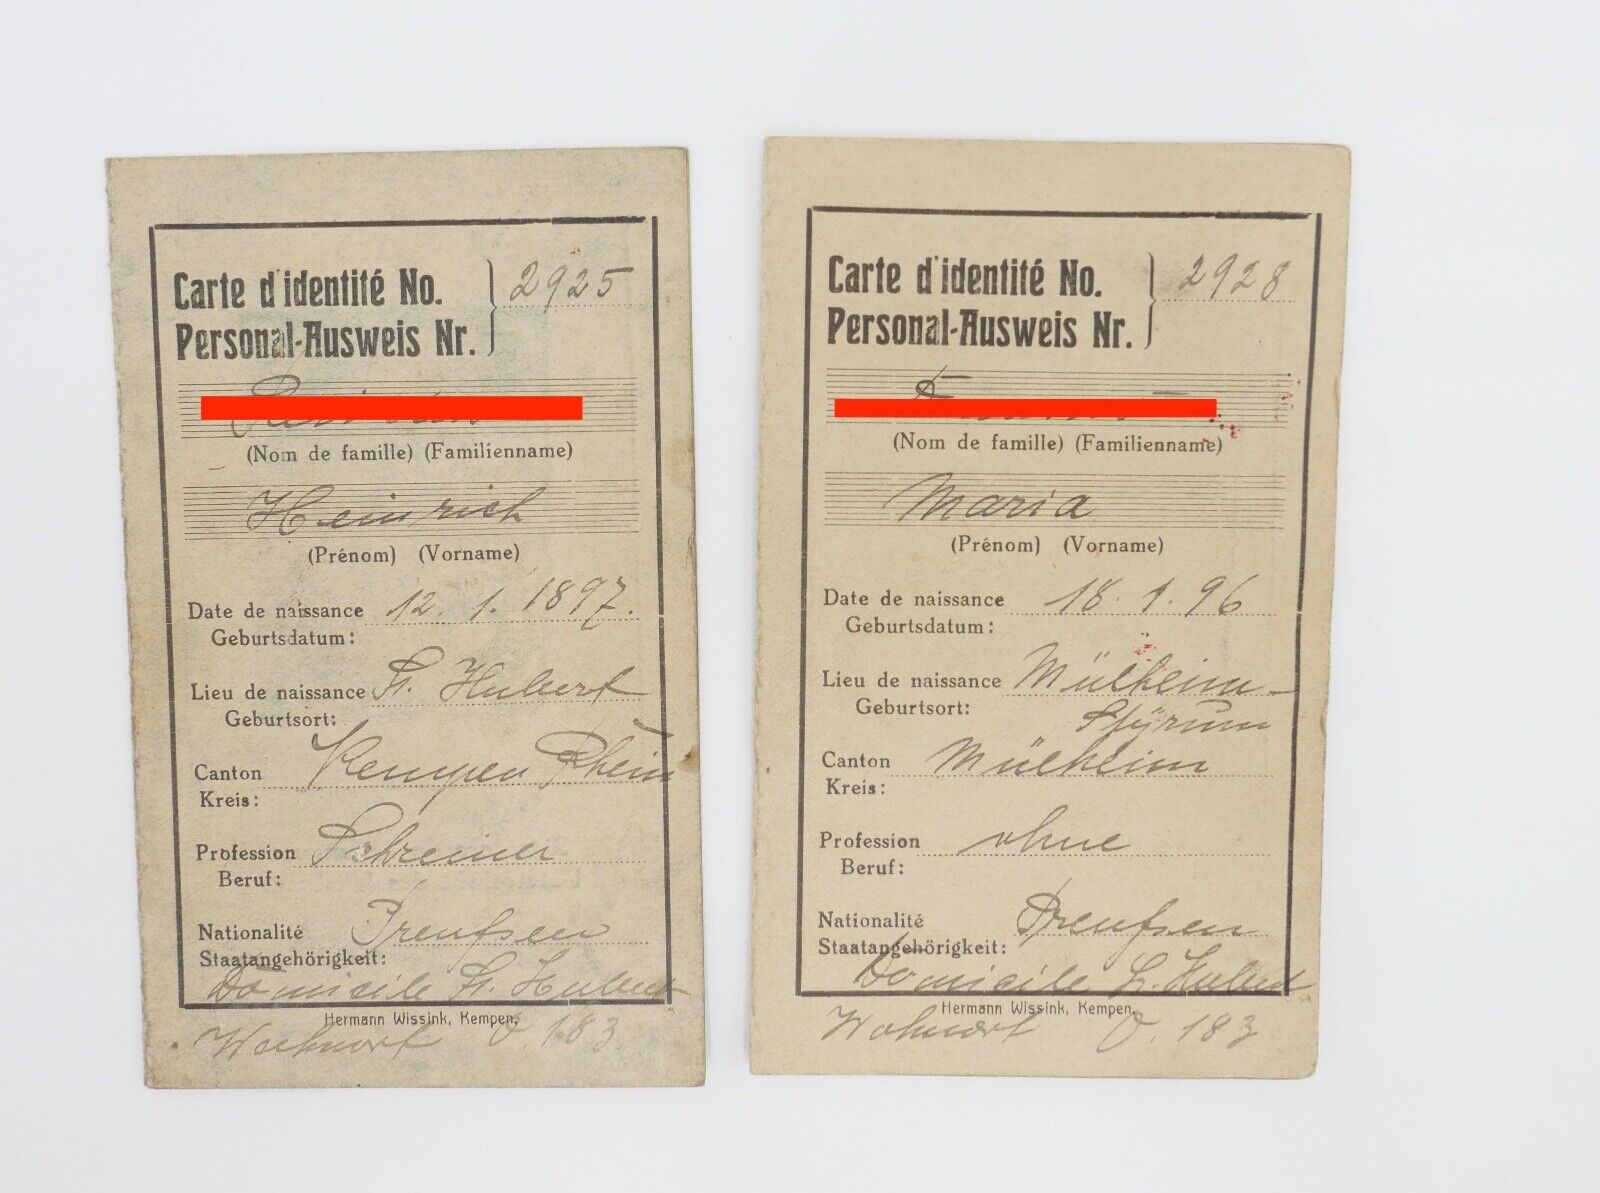 Carte d'identité No.
Personal-Ausweis Nr.
2925
(Nom de famille) (Familienname)
Heinrich
(Prénom) (Vorname)
Date de naissance 12. 1. 1897.
Geburtsdatum:
Lieu de naissance St. Hubert
Geburtsort:
Canton Kempen Rhein
Kreis:
Profession Schreiner
Beruf:
Nationalité Preußen
Staatangehörigkeit:
Domicile St. Hubert
Hermann Wissink, Kempen.
Wohnort O. 183
Carte d'identité No.
Personal-Ausweis Nr.
2928
(Nom de famille) (Familienname)
Maria
(Prénom) (Vorname)
Date de naissance 18. 1. 96
Geburtsdatum:
Lieu de naissance Mülheim-
Geburtsort: Styrum
Canton Mülheim
Kreis:
Profession ohne
Beruf:
Nationalité Preußen
Staatangehörigkeit:
Domicile St. Hubert
Hermann Wissink, Kempen.
Wohnort O. 183